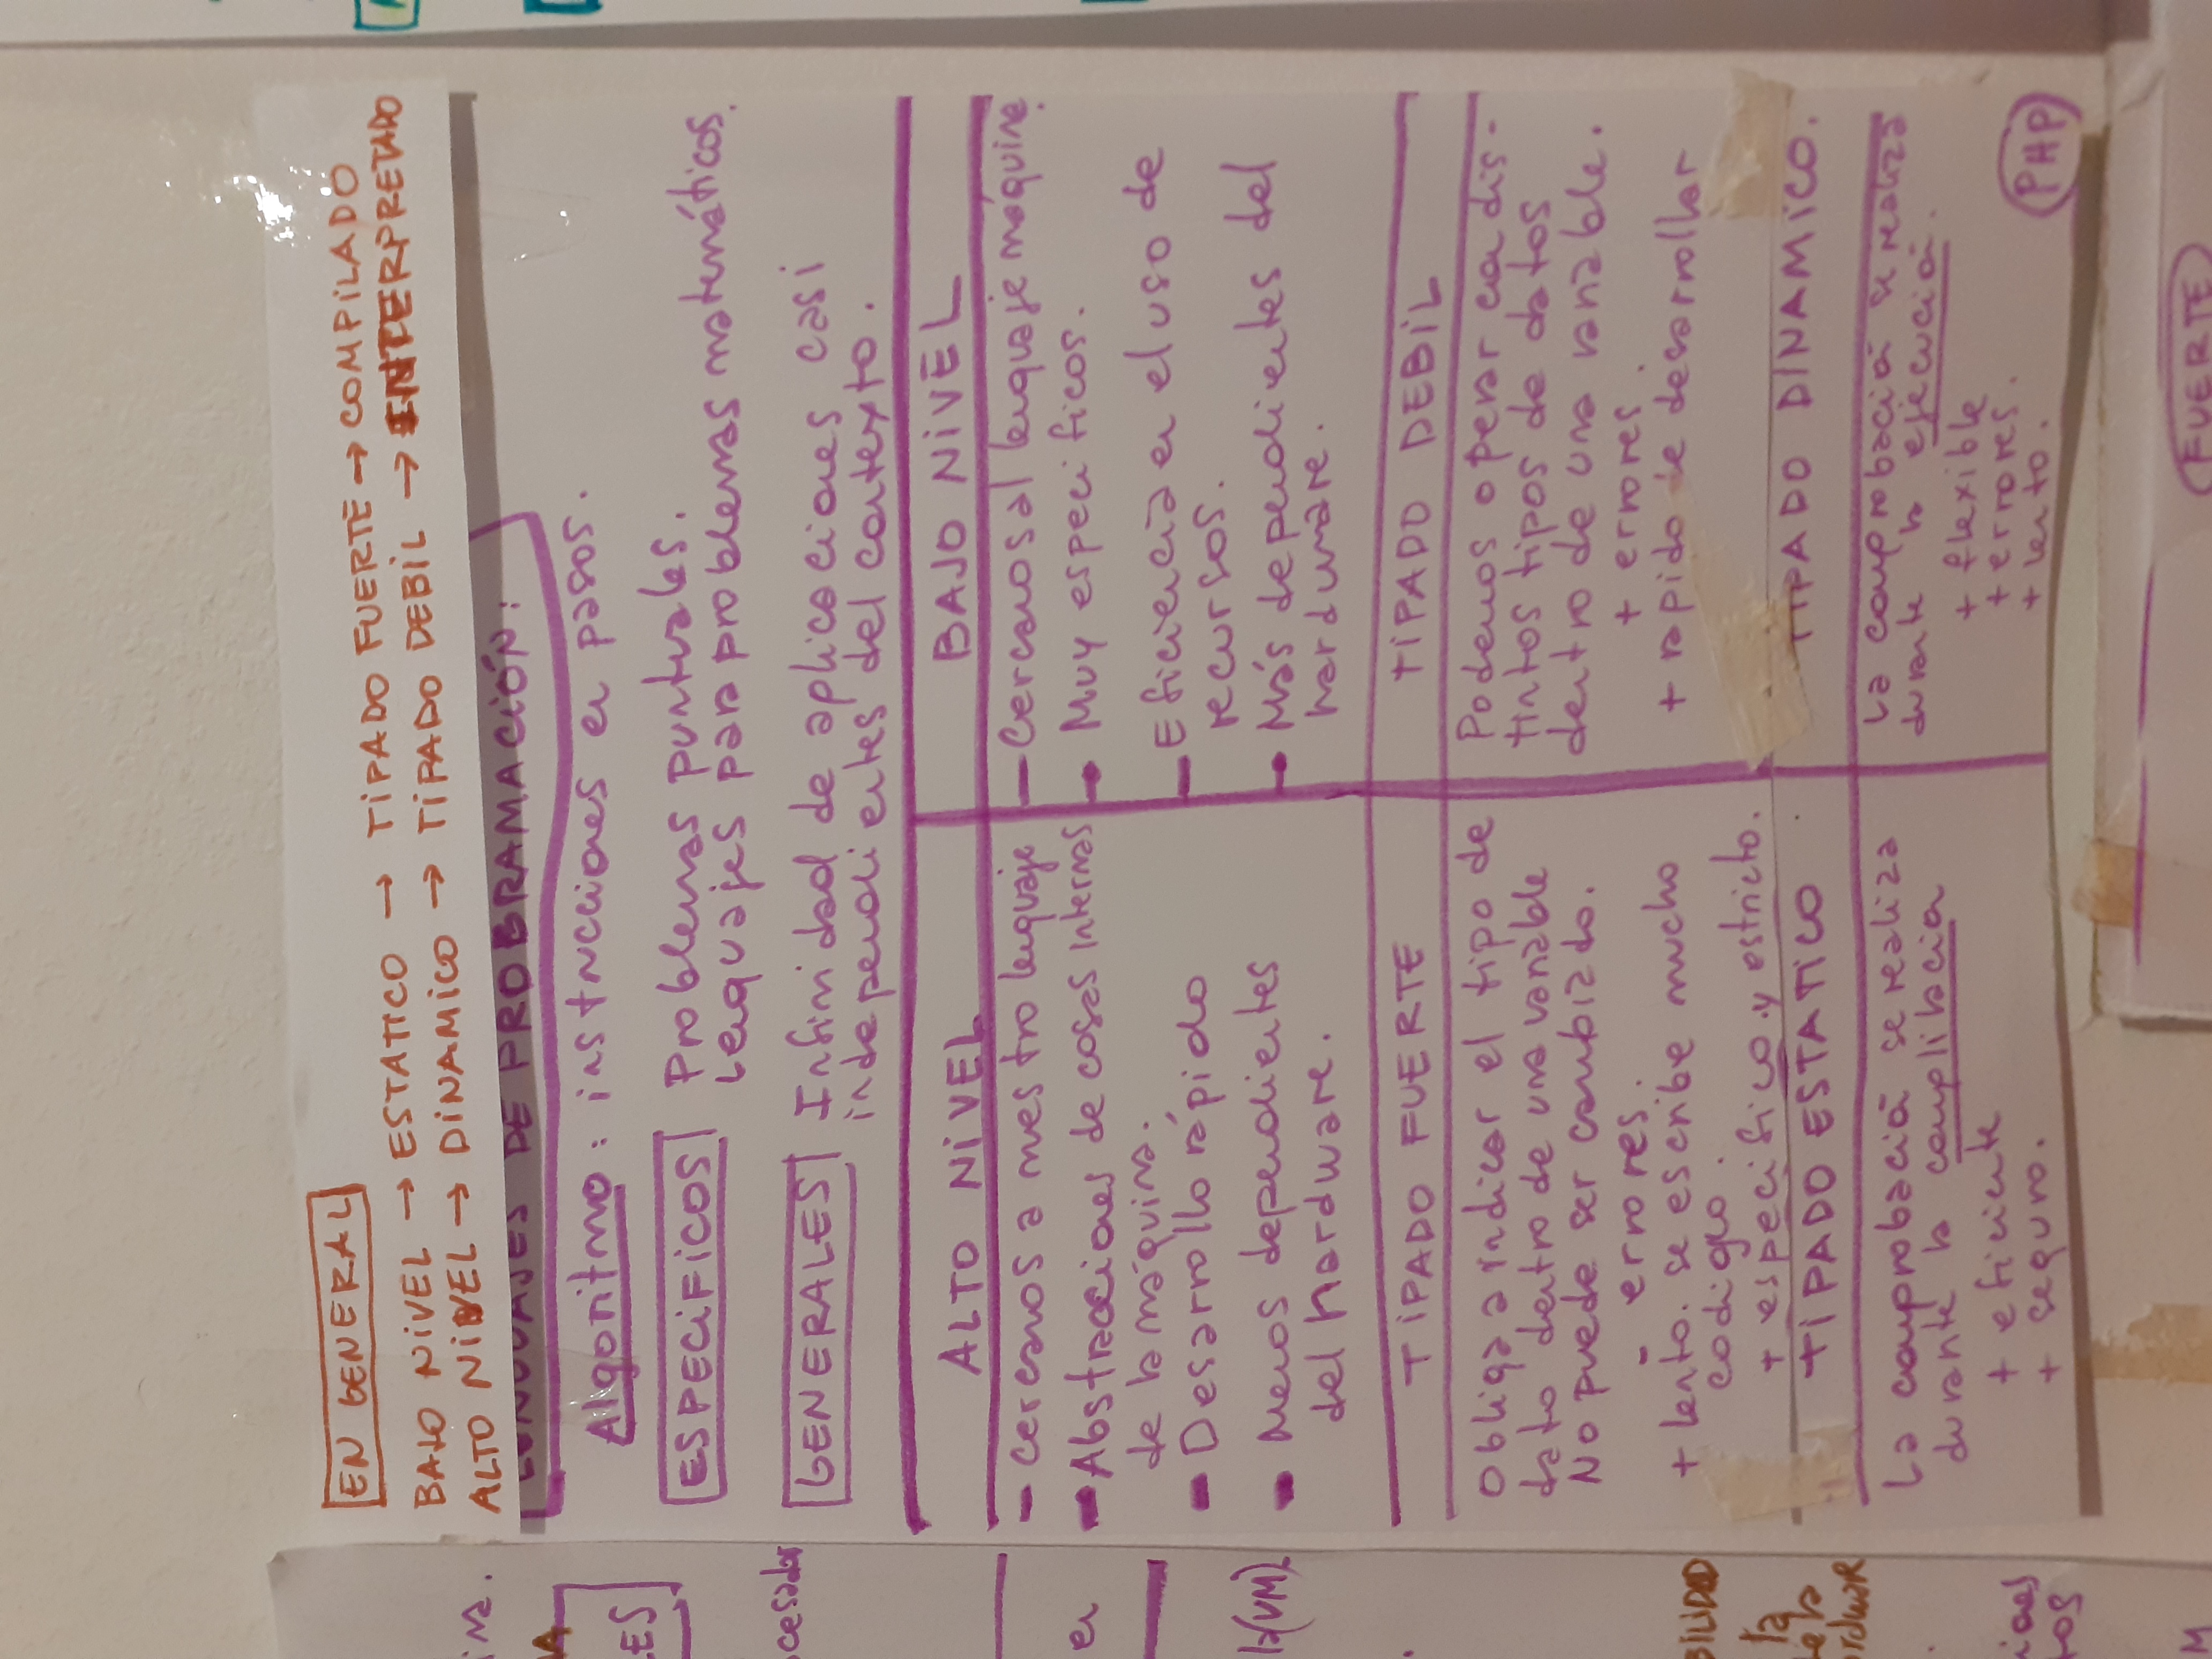 EN GENERAL
BAJO NIVEL → ESTATICO → TIPADO FUERTE → COMPILADO
ALTO NIVEL → DINAMICO → TIPADO DEBIL → INTERPRETADO
LENGUAJES DE PROGRAMACIÓN:
Algoritmo: instrucciones en pasos.
ESPECIFICOS Problemas puntuales.
Lenguajes para problemas matemáticos.
GENERALES Infinidad de aplicaciones casi
independientes del contexto.
ALTO NIVEL
- cercanos a nuestro lenguaje
- Abstracciones de cosas internas
de la máquina.
- Desarrollo rápido
- Menos dependientes
del hardware.
BAJO NIVEL
- Cercanos al lenguaje máquina.
- Muy especificos.
- Eficiencia en el uso de
recursos.
- Más dependientes del
hardware.
TIPADO FUERTE
Obliga a indicar el tipo de
dato dentro de una variable
No puede ser cambiado.
- errores.
+ lento. se escribe mucho
codigo.
+ especifico y estricto.
TIPADO DEBIL
Podemos operar con dis-
tintos tipos de datos
dentro de una variable.
+ errores.
+ rapido de desarrollar
TIPADO ESTATICO
La comprobación se realiza
durante la complilación
+ eficiente
+ seguro.
TIPADO DINAMICO.
La comprobación se realiza
durante la ejecución.
+ flexible
+ errores.
+ lento.
PHP
FUERTE
ina.
LES
cesador
en
la (VM)
BILIDAD
la
rdware
iones
tos
M